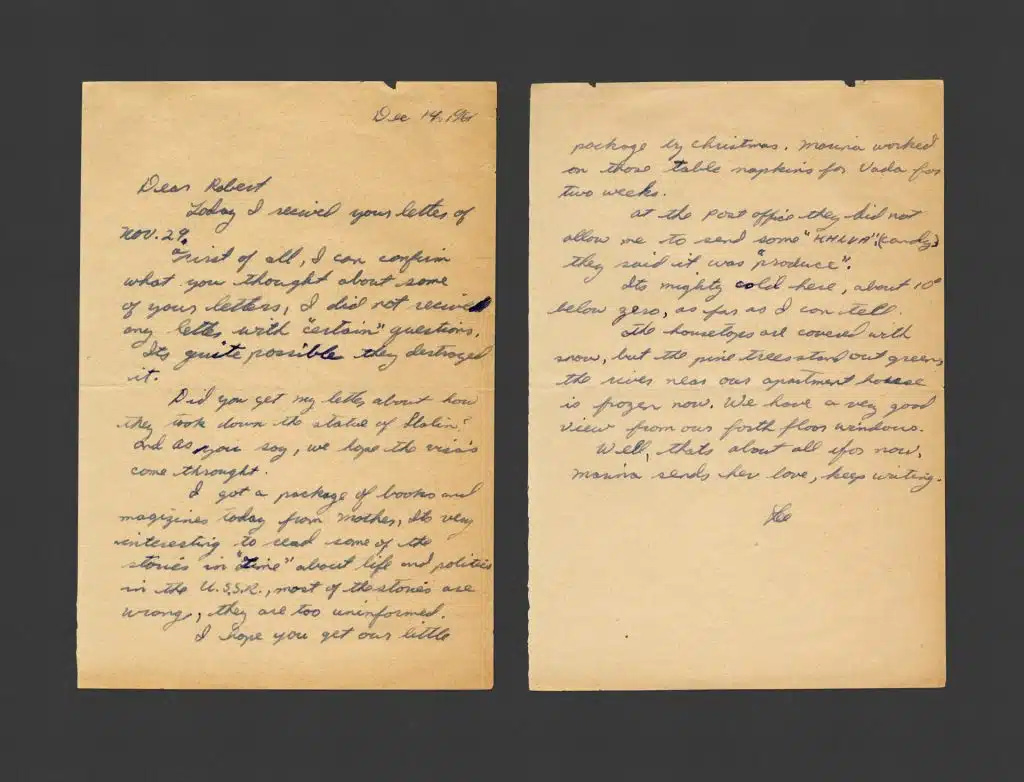 Dec 14, 1961
Dear Robert
Today I recived your letter of
NOV. 29.
First of all, I can confirm
what you thought about some
of your letters, I did not recived
any letter with "certain" questions.
Its quite possible they destroyed
it.
Did you get my letter about how
they took down the statue of Stalin?
And as you say, we hope the visa's
come throught.
I got a package of books and
magizines today from mother, Its very
interesting to read some of the
stories in "Time" about life and politics
in the U.S.S.R., most of the stories are
wrong, they are too uninformed.
I hope you get our little
package by christmas. Marina worked
on those table napkins for Vada for
two weeks.
At the Post office they did not
allow me to send some "KHLVA" (candy)
they said it was "produce".
Its mighty cold here, about 10°
below zero, as far as I can tell.
The housetops are covered with
snow, but the pine trees stand out green,
the river near our apartment house
is frozen now. We have a very good
view from our forth floor windows.
Well, thats about all for now.
Marina sends her love, keep writing.
Lee